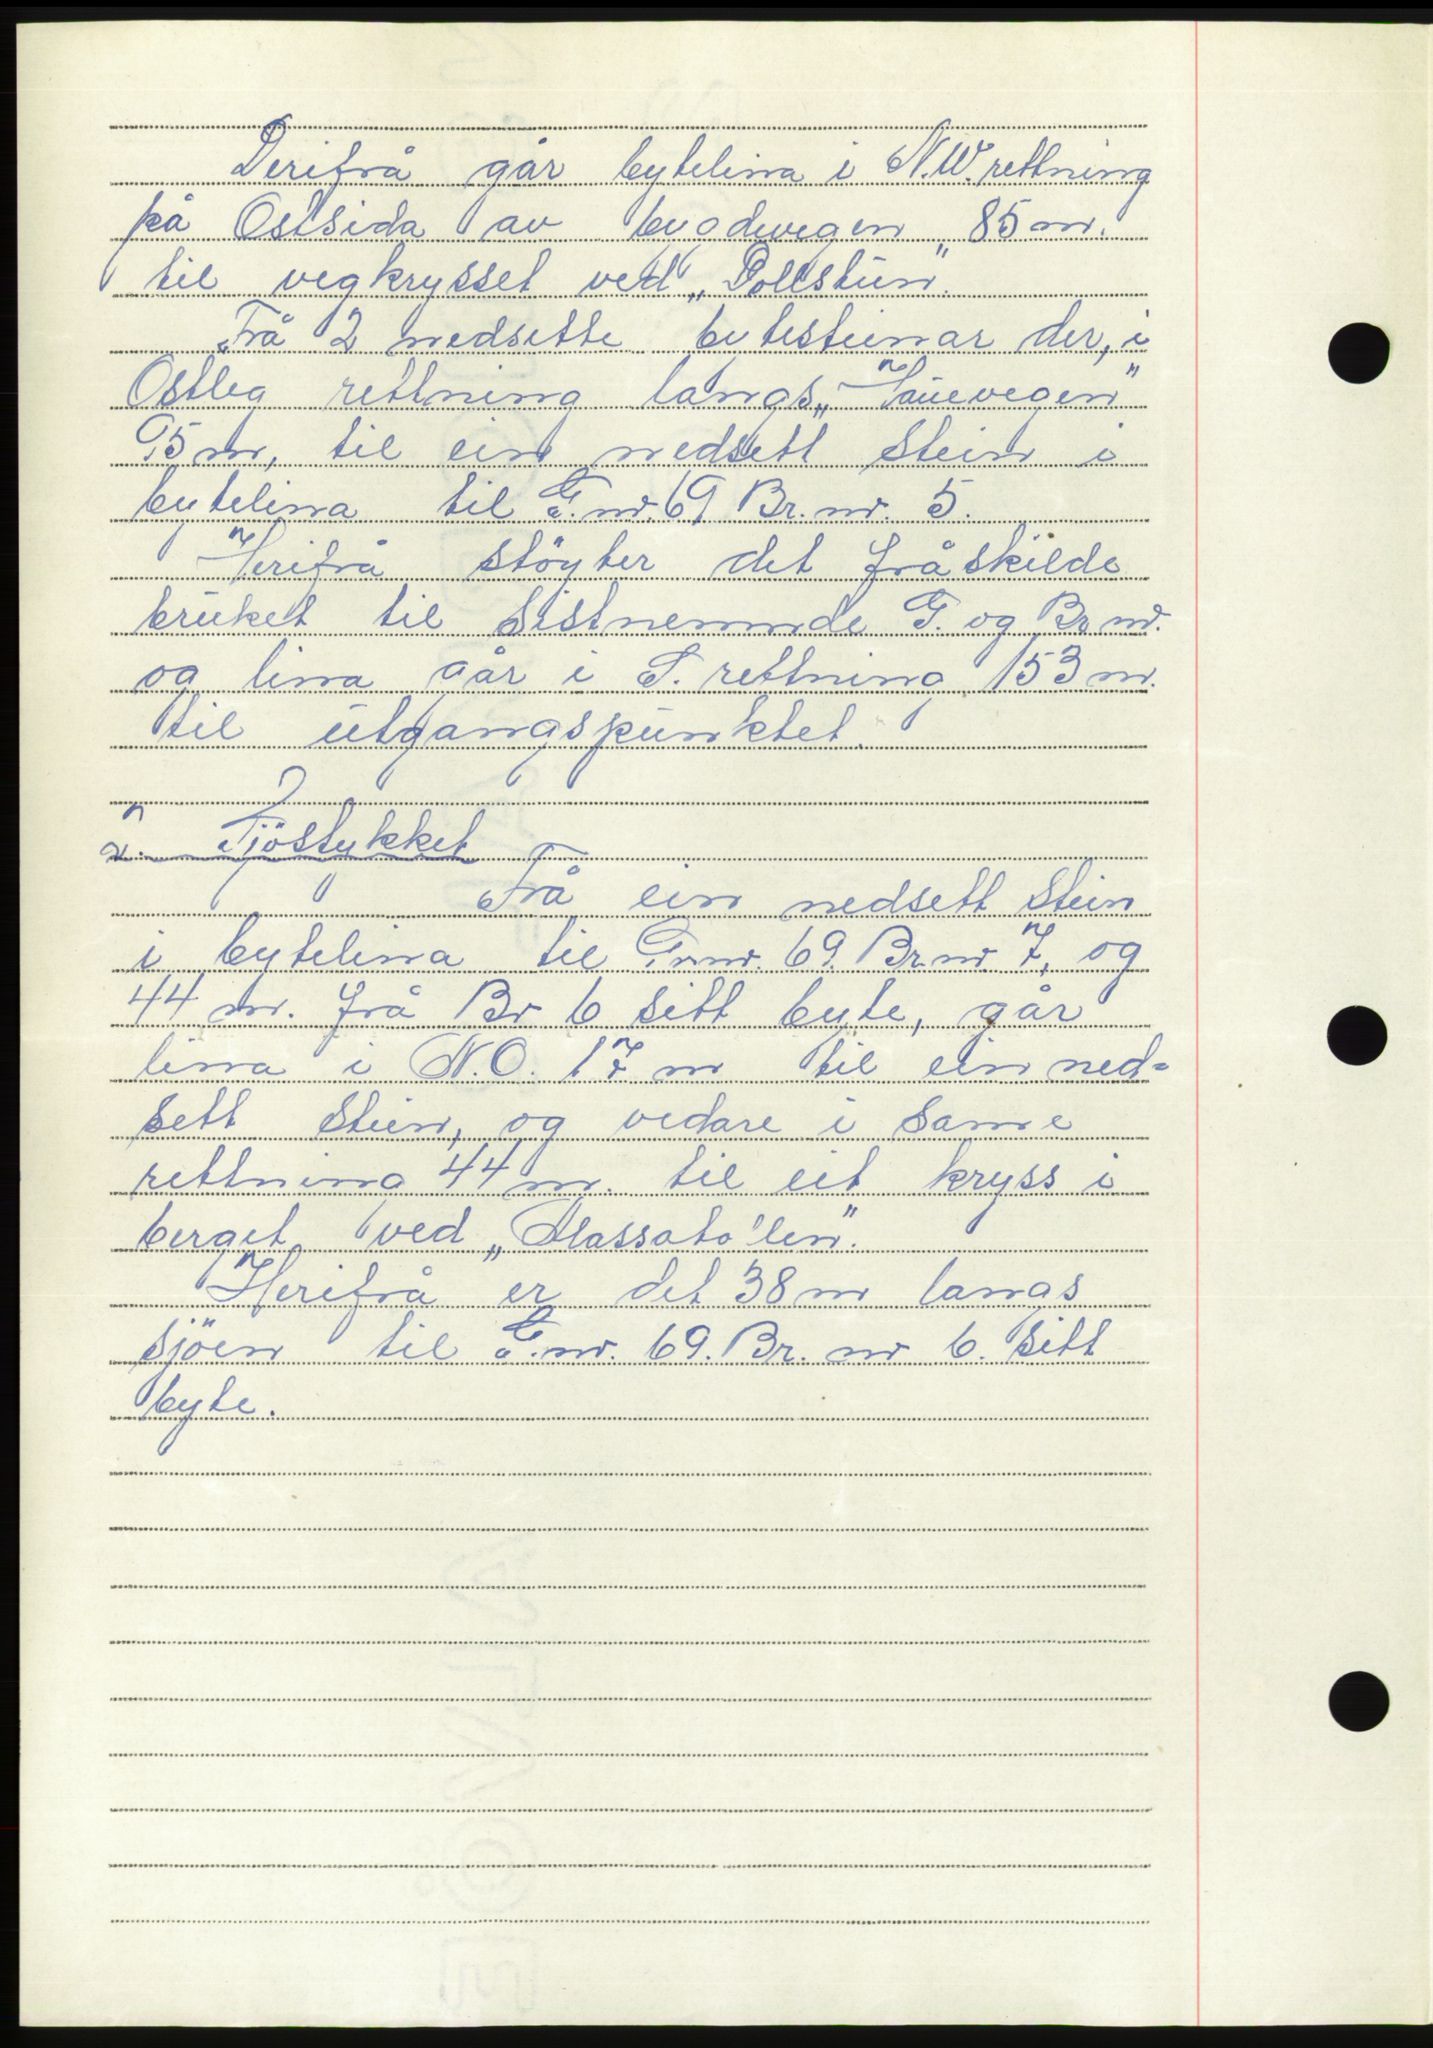 Derifrå går bytelina i N.W. rettning
på Ostsida av bygdevegen 85 m.
til vegkrysset ved „Pollstun".
Frå 2 nedsette bytesteinar der, i
Ostleg rettning langs „Hauevegen"
95 m, til ein nedsett Stein i
bytelina til G. nr. 69 Br. nr. 5.
Herifrå støyter det fråskilde
bruket til Sistnemnde G. og Br nr.
og lina går i S. rettning 153 m.
til utgangspunktet.
2. Sjöstykket
Frå ein nedsett Stein
i bytelina til G. nr. 69. Br. nr 7, og
44 m. frå Br 6 sitt byte, går
lina i N.O. 17 m til ein ned=
sett Stein, og vedare i same
rettning 44 m. til eit kryss i
berget ved
Herifrå er det 38 m langs
sjöen til G. nr. 69. Br. nr 6. sitt
byte.